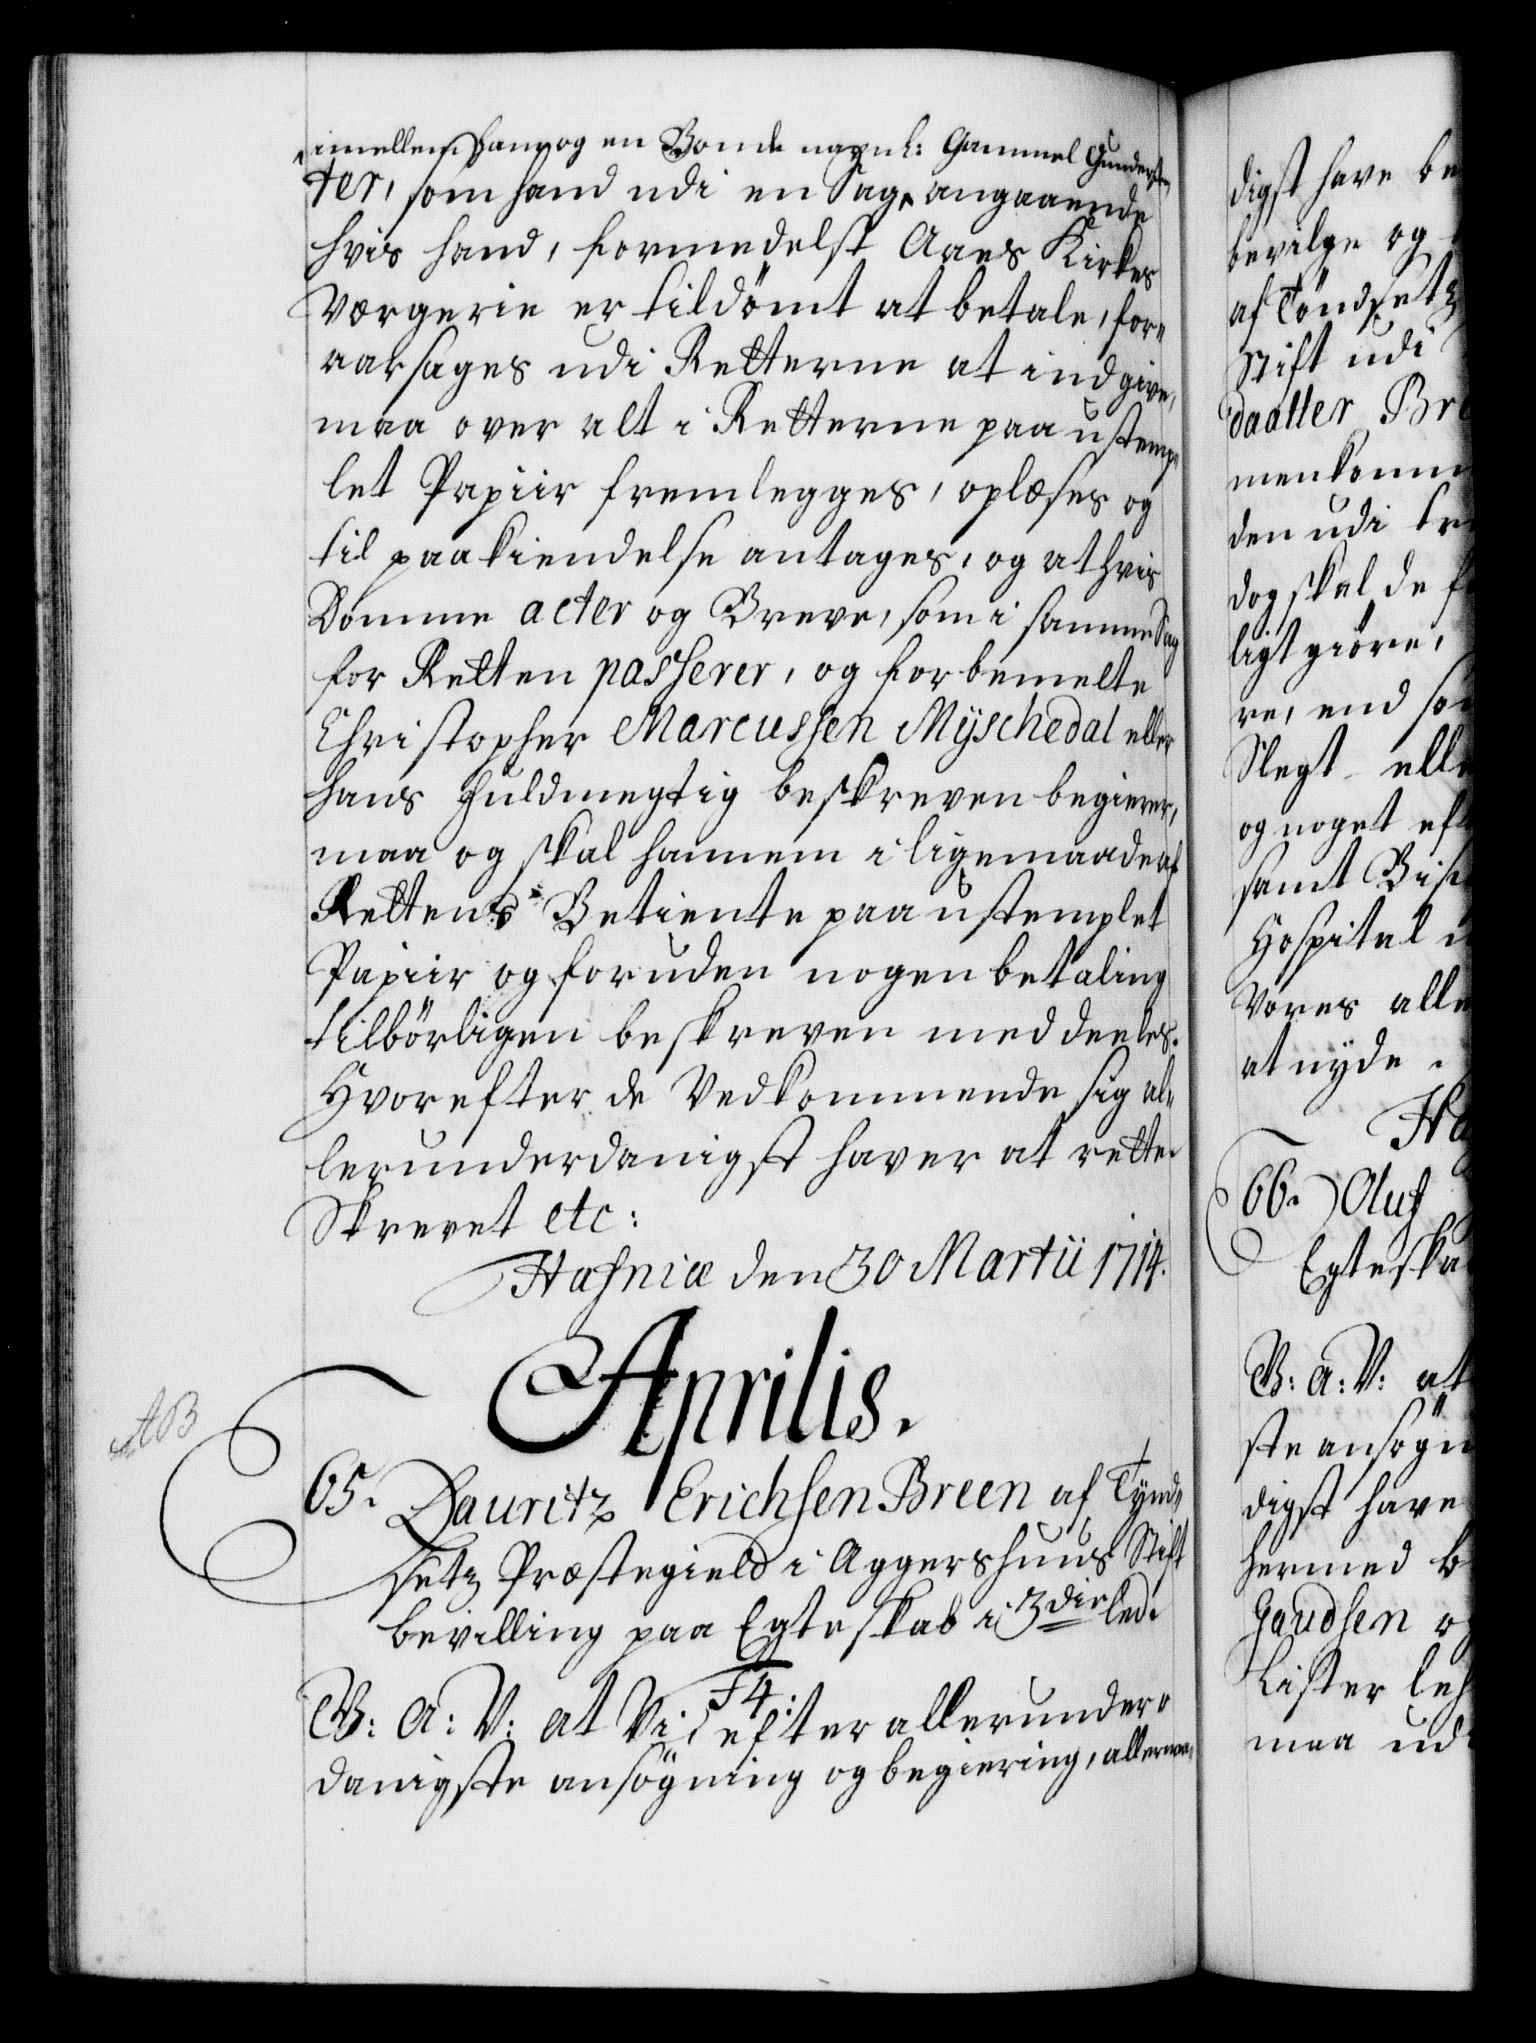 imellem ham og en Bonde navnl: Gammel Gundersen
ter, som hand udi en Sag, angaaende
hvis hand, formedelst Aaes Kirkes
Værgerie er tildömt at betale, for-
aarsages udi Retterne at indgive,
maa over alt i Retterne paa ustemp-
let Papiir fremlegges, oplæses og
til paakiendelse antages, og at hvis
Domme acter og Breve, som i samme Sag
for Retten passerer, og forbemelte
Christopher Marcussen Myschedal eller
hans Fuldmegtig beskreven begierer,
maa og skal hannem i ligemaade af
Rettens Betiente paa ustemplet
Papiir og foruden nogen betaling
tilbörligen beskreven meddeeles.
Hvorefter de Vedkommende sig al-
lerunderdanigst haver at rette.
Skrevet etc:
Hafniæ den 30 Martii 1714.
Aprilis.
AB
65. Lauritz Erichsen Breen af Tynd-
setz Præstegield i Aggershuus Stift
bevilling paa Egteskab i 3die led.
F4.
W: A: V: at Vi efter allerunder-
danigste ansögning og begiering, allernaa-
digst have be
bevilge og
af Töndsetz
Stift udi
daatter Bre
menkomm
den udi tr
dog skal de
ligt giöre,
re, end so
Slegt elle
og noget eft
samt Bis
Hospital
Vores alle
at nyde.
Ha
66. Oluf
Egteska
W: A: V: at
ste ansögn
digst have
hermed b
Gaudsen og
Lister leh
maa udi